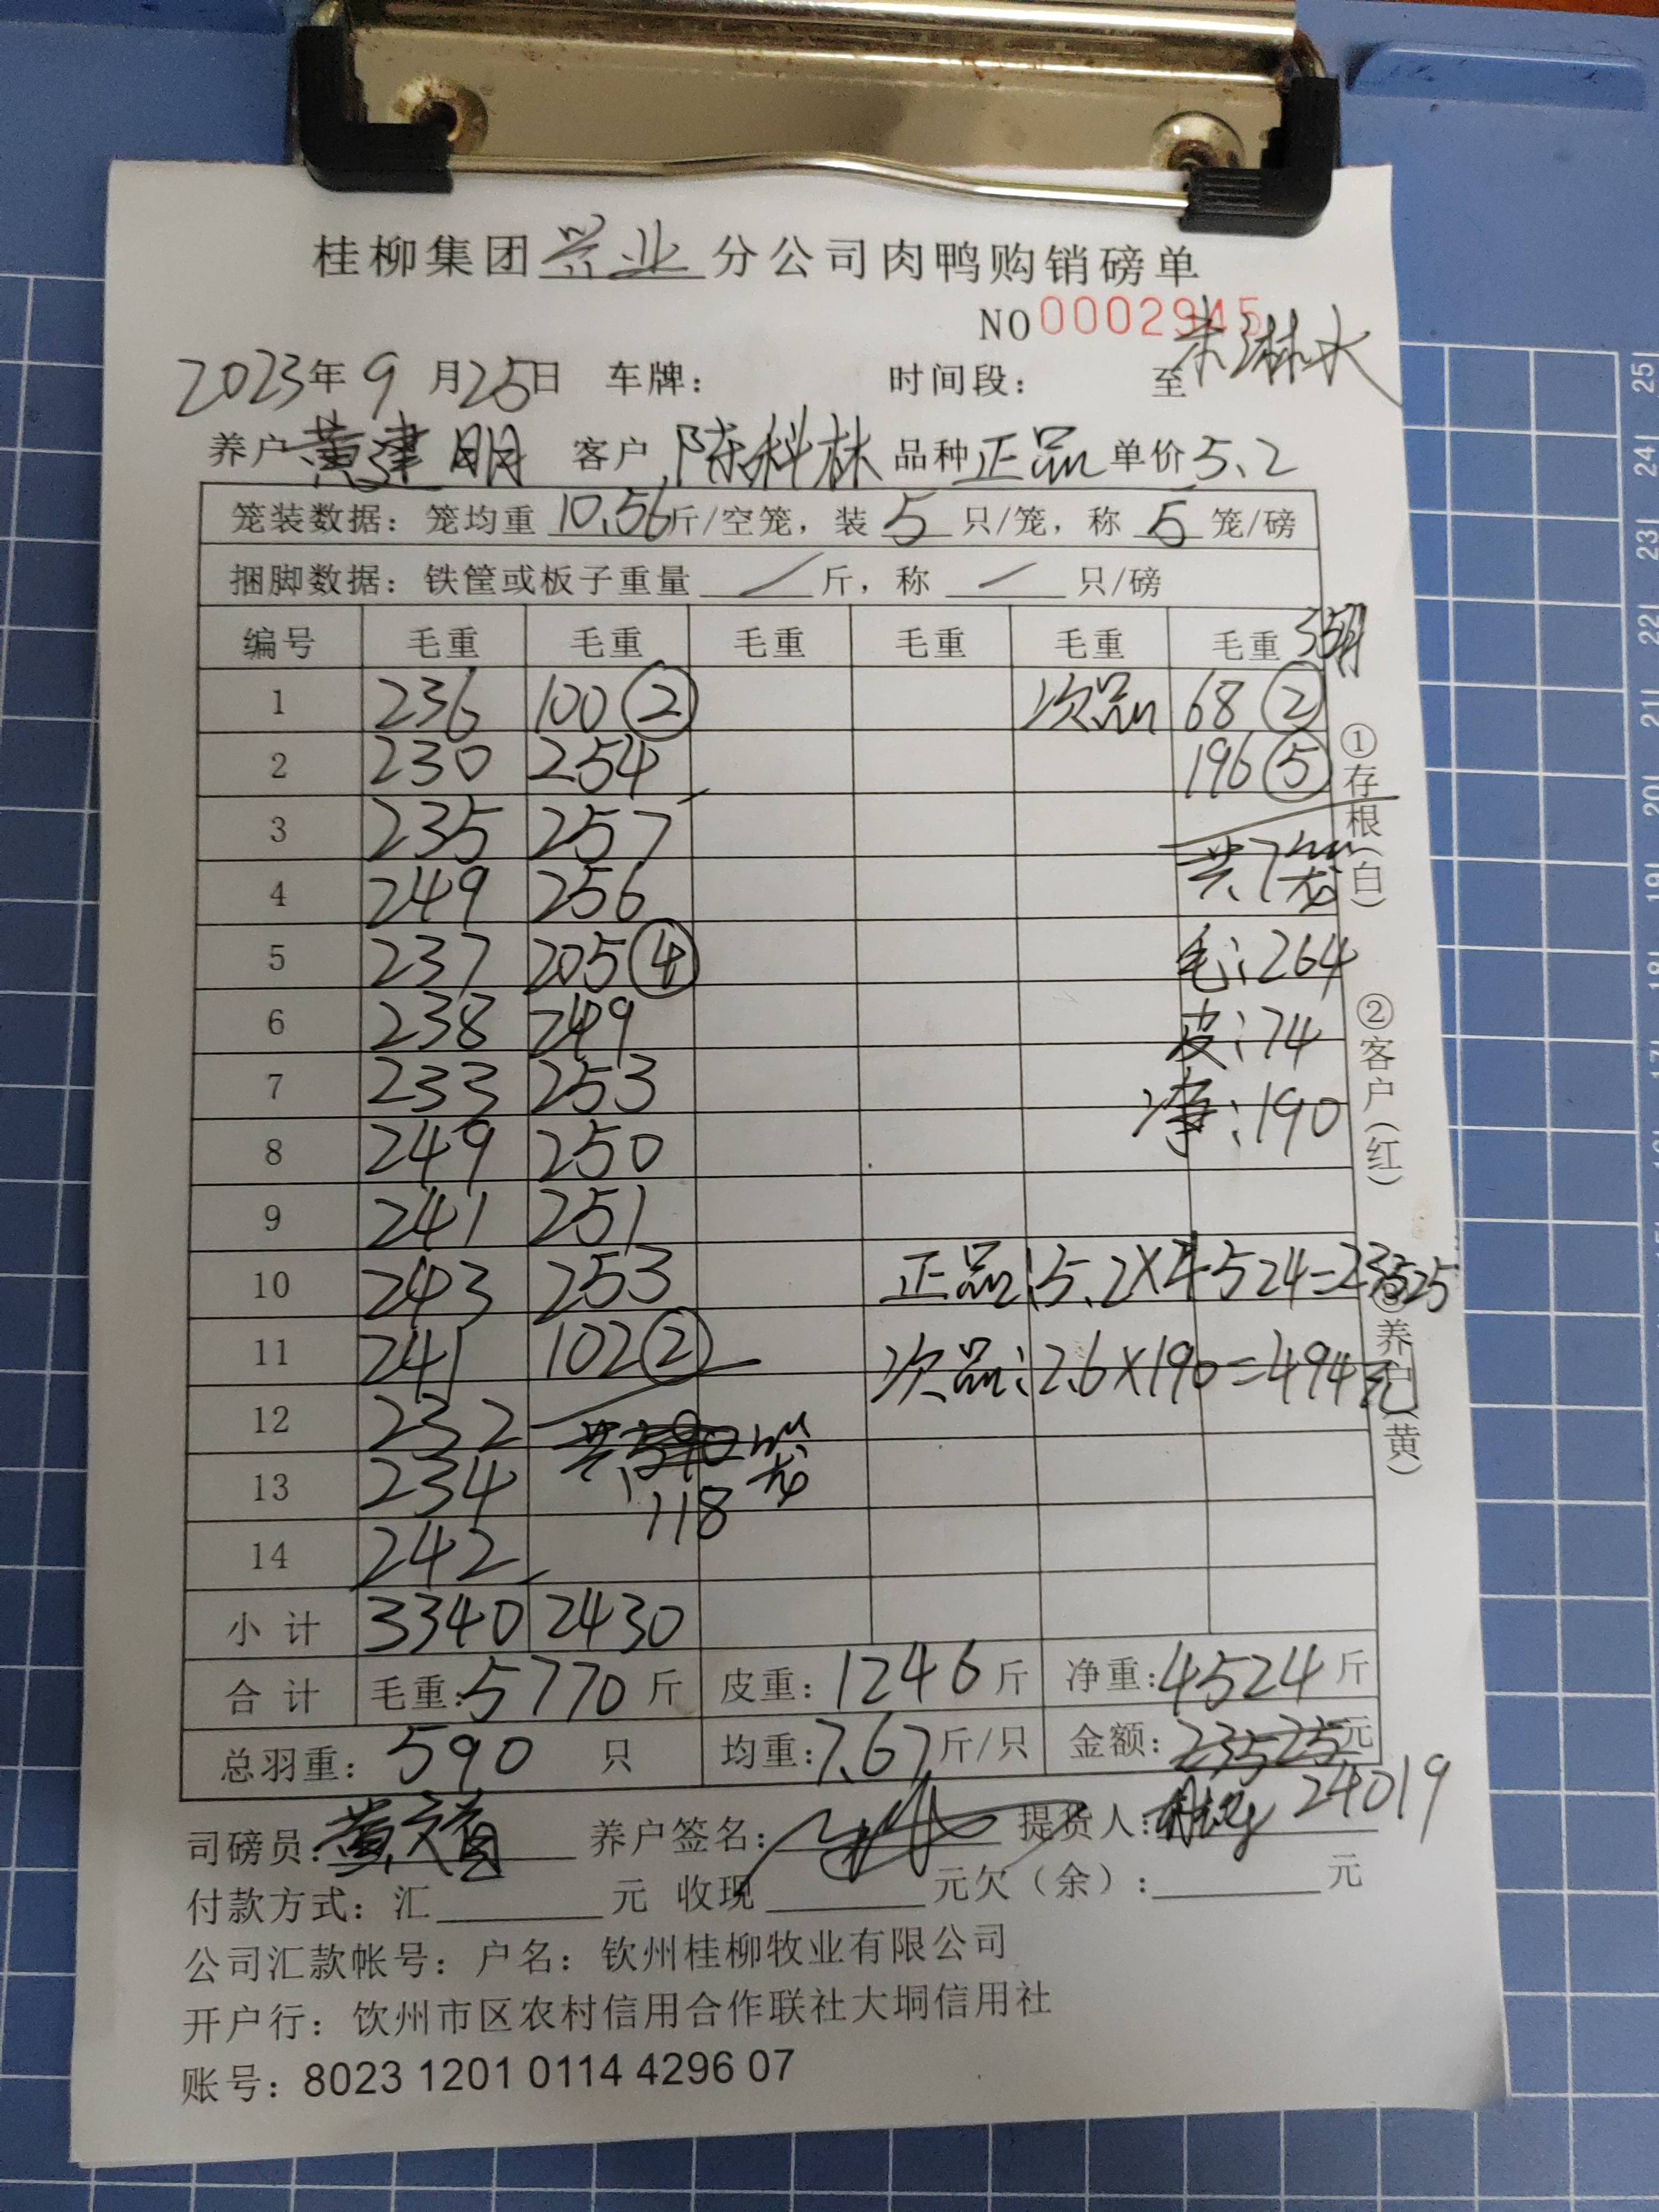 桂柳集团兴业分公司肉鸭购销磅单
NO 0002945
2023年9月25日 车牌： 时间段： 至 未淋水
养户 黄建明 客户 陈科林 品种 正品 单价 5.2
笼装数据：笼均重 10.56 斤/空笼，装 5 只/笼，称 5 笼/磅
捆脚数据：铁筐或板子重量 / 斤，称 / 只/磅
编号 毛重 毛重 毛重 毛重 毛重 毛重 35only
1 236 100② 次品 68②
2 230 254 196⑤
3 235 257
4 249 256 共7笼
5 237 205④ 毛:264
6 238 249 皮:74
7 233 253 净:190
8 249 250
9 241 251
10 243 253 正品:5.2×4524=23525
11 241 102② 次品:2.6×190=494元
12 232 共590笼
13 234 118
14 242
小计 3340 2430
合计 毛重:5770斤 皮重:1246斤 净重:4524斤
总羽重:590 只 均重:7.67斤/只 金额:23525元
24019
司磅员: 养户签名: 提货人:
付款方式：汇 元 收现 元欠（余）: 元
公司汇款帐号：户名：钦州桂柳牧业有限公司
开户行：饮州市区农村信用合作联社大垌信用社
账号：8023 1201 0114 4296 07
①存根（白）
②客户（红）
③养户（黄）